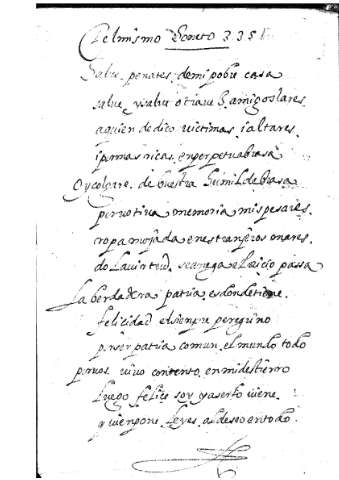 Del mismo Soneto 335
Salve penates de mi pobre casa
salve y salve otra ves amigos lares
a quien dedico victimas i altares
en perpetua brasa
Oy colgare de buestra humilde basa
por votiva memoria mis pesares
ropa mojada en estranjeros mares
do la virtud se anega el vicio passa
La berdadera patria es donde tiene
felicidad el siempre peregrino
ser patria comun el mundo todo
vivo contento en mi destierro
luego felice soy
quien pone leyes al deseo en todo